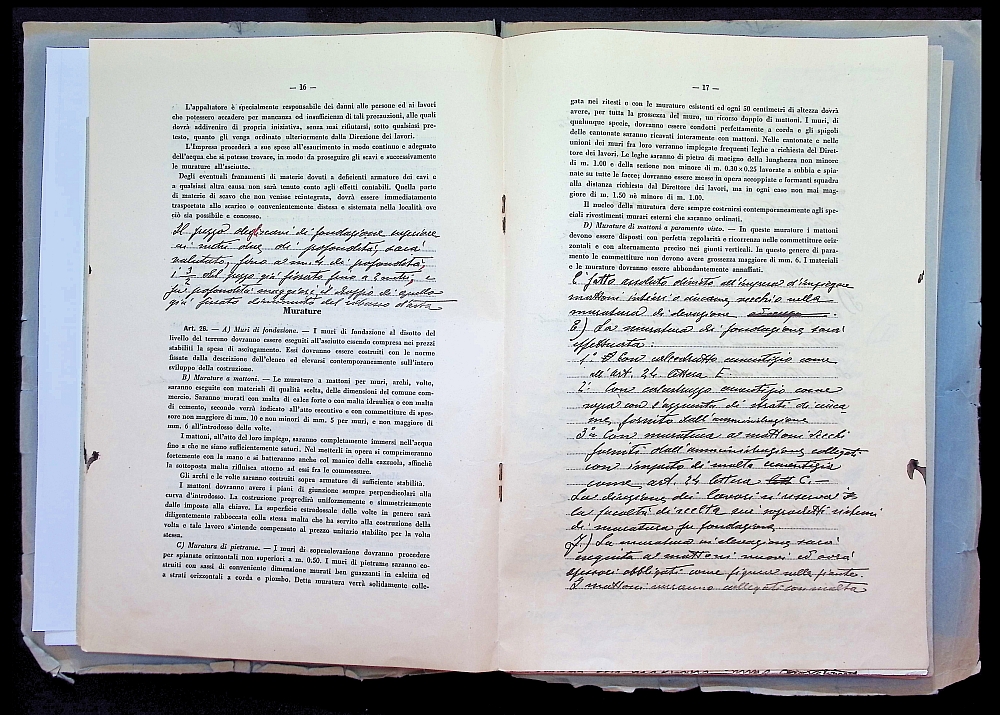 — 16 —
L'appaltatore è specialmente responsabile dei danni alle persone ed ai lavori
che potessero accadere per mancanza od insufficienza di tali precauzioni, alle quali
dovrà addivenire di propria iniziativa, senza mai rifiutarsi, sotto qualsiasi pre-
testo, quanto gli venga ordinato ulteriormente dalla Direzione dei lavori.
L'Impresa procederà a sue spese all'esaurimento in modo continuo e adeguato
dell'acqua che si potesse trovare, in modo da proseguire gli scavi e successivamente
le murature all'asciutto.
Degli eventuali franamenti di materie dovuti a deficienti armature dei cavi e
a qualsiasi altra causa non sarà tenuto conto agli effetti contabili. Quella parte
di materie di scavo che non venisse reintegrata, dovrà essere immediatamente
trasportata allo scarico o convenientemente distesa e sistemata nella località ove
ciò sia possibile e concesso.
Il prezzo degli scavi di fondazione superiore
ai metri due di profondità, sarà
valutato, fino a m. 4 di profondità,
1 3/2 del prezzo già fissato fino a 2 metri, e
per profondità maggiore, il doppio di quello
già fissato diminuito del ribasso d'asta
Murature
Art. 28. — A) Muri di fondazione. — I muri di fondazione al disotto del
livello del terreno dovranno essere eseguiti all'asciutto essendo compresa nei prezzi
stabiliti la spesa di asciugamento. Essi dovranno essere costruiti con le norme
fissate dalla descrizione dell'elenco ed elevarsi contemporaneamente sull'intero
sviluppo della costruzione.
B) Murature a mattoni. — Le murature a mattoni per muri, archi, volte,
saranno eseguite con materiali di qualità scelta, delle dimensioni del comune com-
mercio. Saranno murati con malta di calce forte o con malta idraulica o con malta
di cemento, secondo verrà indicato all'atto esecutivo e con commettiture di spes-
sore non maggiore di mm. 10 e non minori di mm. 5 per muri, e non maggiore di
mm. 6 all'introdosso delle volte.
I mattoni, all'atto del loro impiego, saranno completamente immersi nell'acqua
fino a che ne siano sufficientemente saturi. Nel metterli in opera si comprimeranno
fortemente con la mano e si batteranno anche col manico della cazzuola, affinchè
la sottoposta malta rifluisca attorno ad essi fra le commessure.
Gli archi e le volte saranno costruiti sopra armature di sufficiente stabilità.
I mattoni dovranno avere i piani di giunzione sempre perpendicolari alla
curva d'introdosso. La costruzione progredirà uniformemente e simmetricamente
dalle imposte alla chiave. La superficie estradossale delle volte in genere sarà
diligentemente rabboccata colla stessa malta che ha servito alla costruzione della
volta e tale lavoro s'intende compensato al prezzo unitario stabilito per la volta
stessa.
C) Muratura di pietrame. — I muri di sopraelevazione dovranno procedere
per spianate orizzontali non superiori a m. 0.50. I muri di pietrame saranno co-
struiti con sassi di conveniente dimensione murati ben guazzanti in calcina ed
a strati orizzontali a corda e piombo. Detta muratura verrà solidamente colle-
— 17 —
gata nei ritesti e con le murature esistenti ed ogni 50 centimetri di altezza dovrà
avere, per tutta la grossezza del muro, un ricorso doppio di mattoni. I muri, di
qualunque specie, dovranno essere condotti perfettamente a corda e gli spigoli
delle cantonate saranno ricavati interamente con mattoni. Nelle cantonate e nelle
unioni dei muri fra loro verranno impiegate frequenti leghe a richiesta del Diret-
tore dei lavori. Le leghe saranno di pietra di macigno della lunghezza non minore
di m. 1.00 e della sezione non minore di m. 0.30×0.25 lavorate a subbia e spia-
nate su tutte le facce; dovranno essere messe in opera accoppiate e formanti squadra
alla distanza richiesta dal Direttore dei lavori, ma in ogni caso non mai mag-
giore di m. 1.50 nè minore di m. 1.00.
Il nucleo della muratura deve sempre costruirsi contemporaneamente agli spe-
ciali rivestimenti murari esterni che saranno ordinati.
D) Muratura di mattoni a paramento visto. — In queste murature i mattoni
devono essere disposti con perfetta regolarità e ricorrenza nelle commettiture oriz-
zontali e con alternamento preciso nei giunti verticali. In questo genere di para-
mento le commettiture non dovono avere grossezza maggiore di mm. 6. I materiali
e le murature dovranno essere abbondantemente annaffiati.
E' fatto assoluto divieto all'impresa d'impiegare
mattoni interi o rottame vecchio nella
muratura di elevazione
E) La muratura di fondazione sarà
effettuata:
1º Con calcestruzzo cementizio come
all'art. 24 lettera E
2º Con calcestruzzo cementizio come
sopra con l'aggiunta di strati di
fornito dall'amministrazione
3º Con muratura a mattoni secchi
forniti dall'amministrazione collegati
con impasto di malta cementizia
come art. 24 lettera C. —
La direzione dei lavori si riserva
la facoltà di scelta sui sopradetti sistemi
di muratura per fondazione
F.) La muratura in elevazione sarà
eseguita a mattoni nuovi ed avrà
spessori obbligati come figura sulle piante.
I mattoni saranno collegati con malta